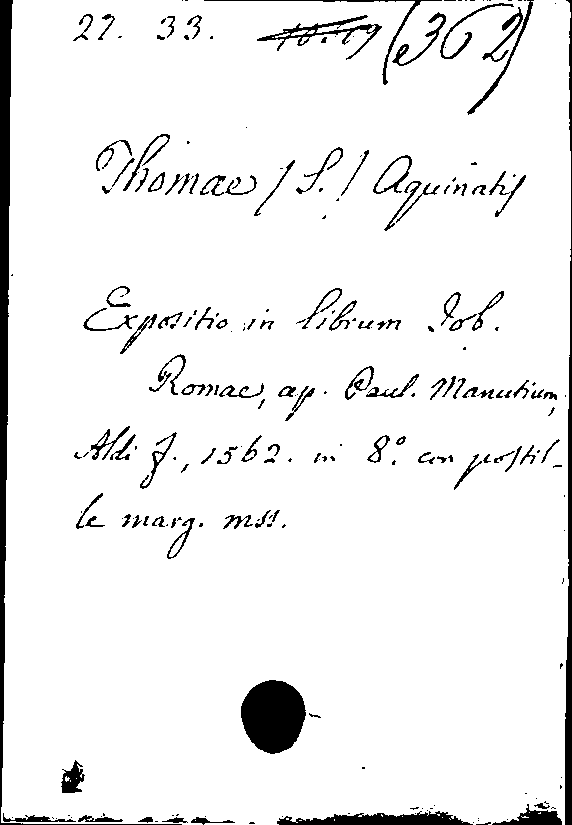 22. 33. 10.19 (e362)
Thomae (S.) Aquinatis
Expositio in librum Iob.
Romae, ap. Paul. Manutium,
Aldi f., 1562. in 8.° con postil-
le marg. mss.